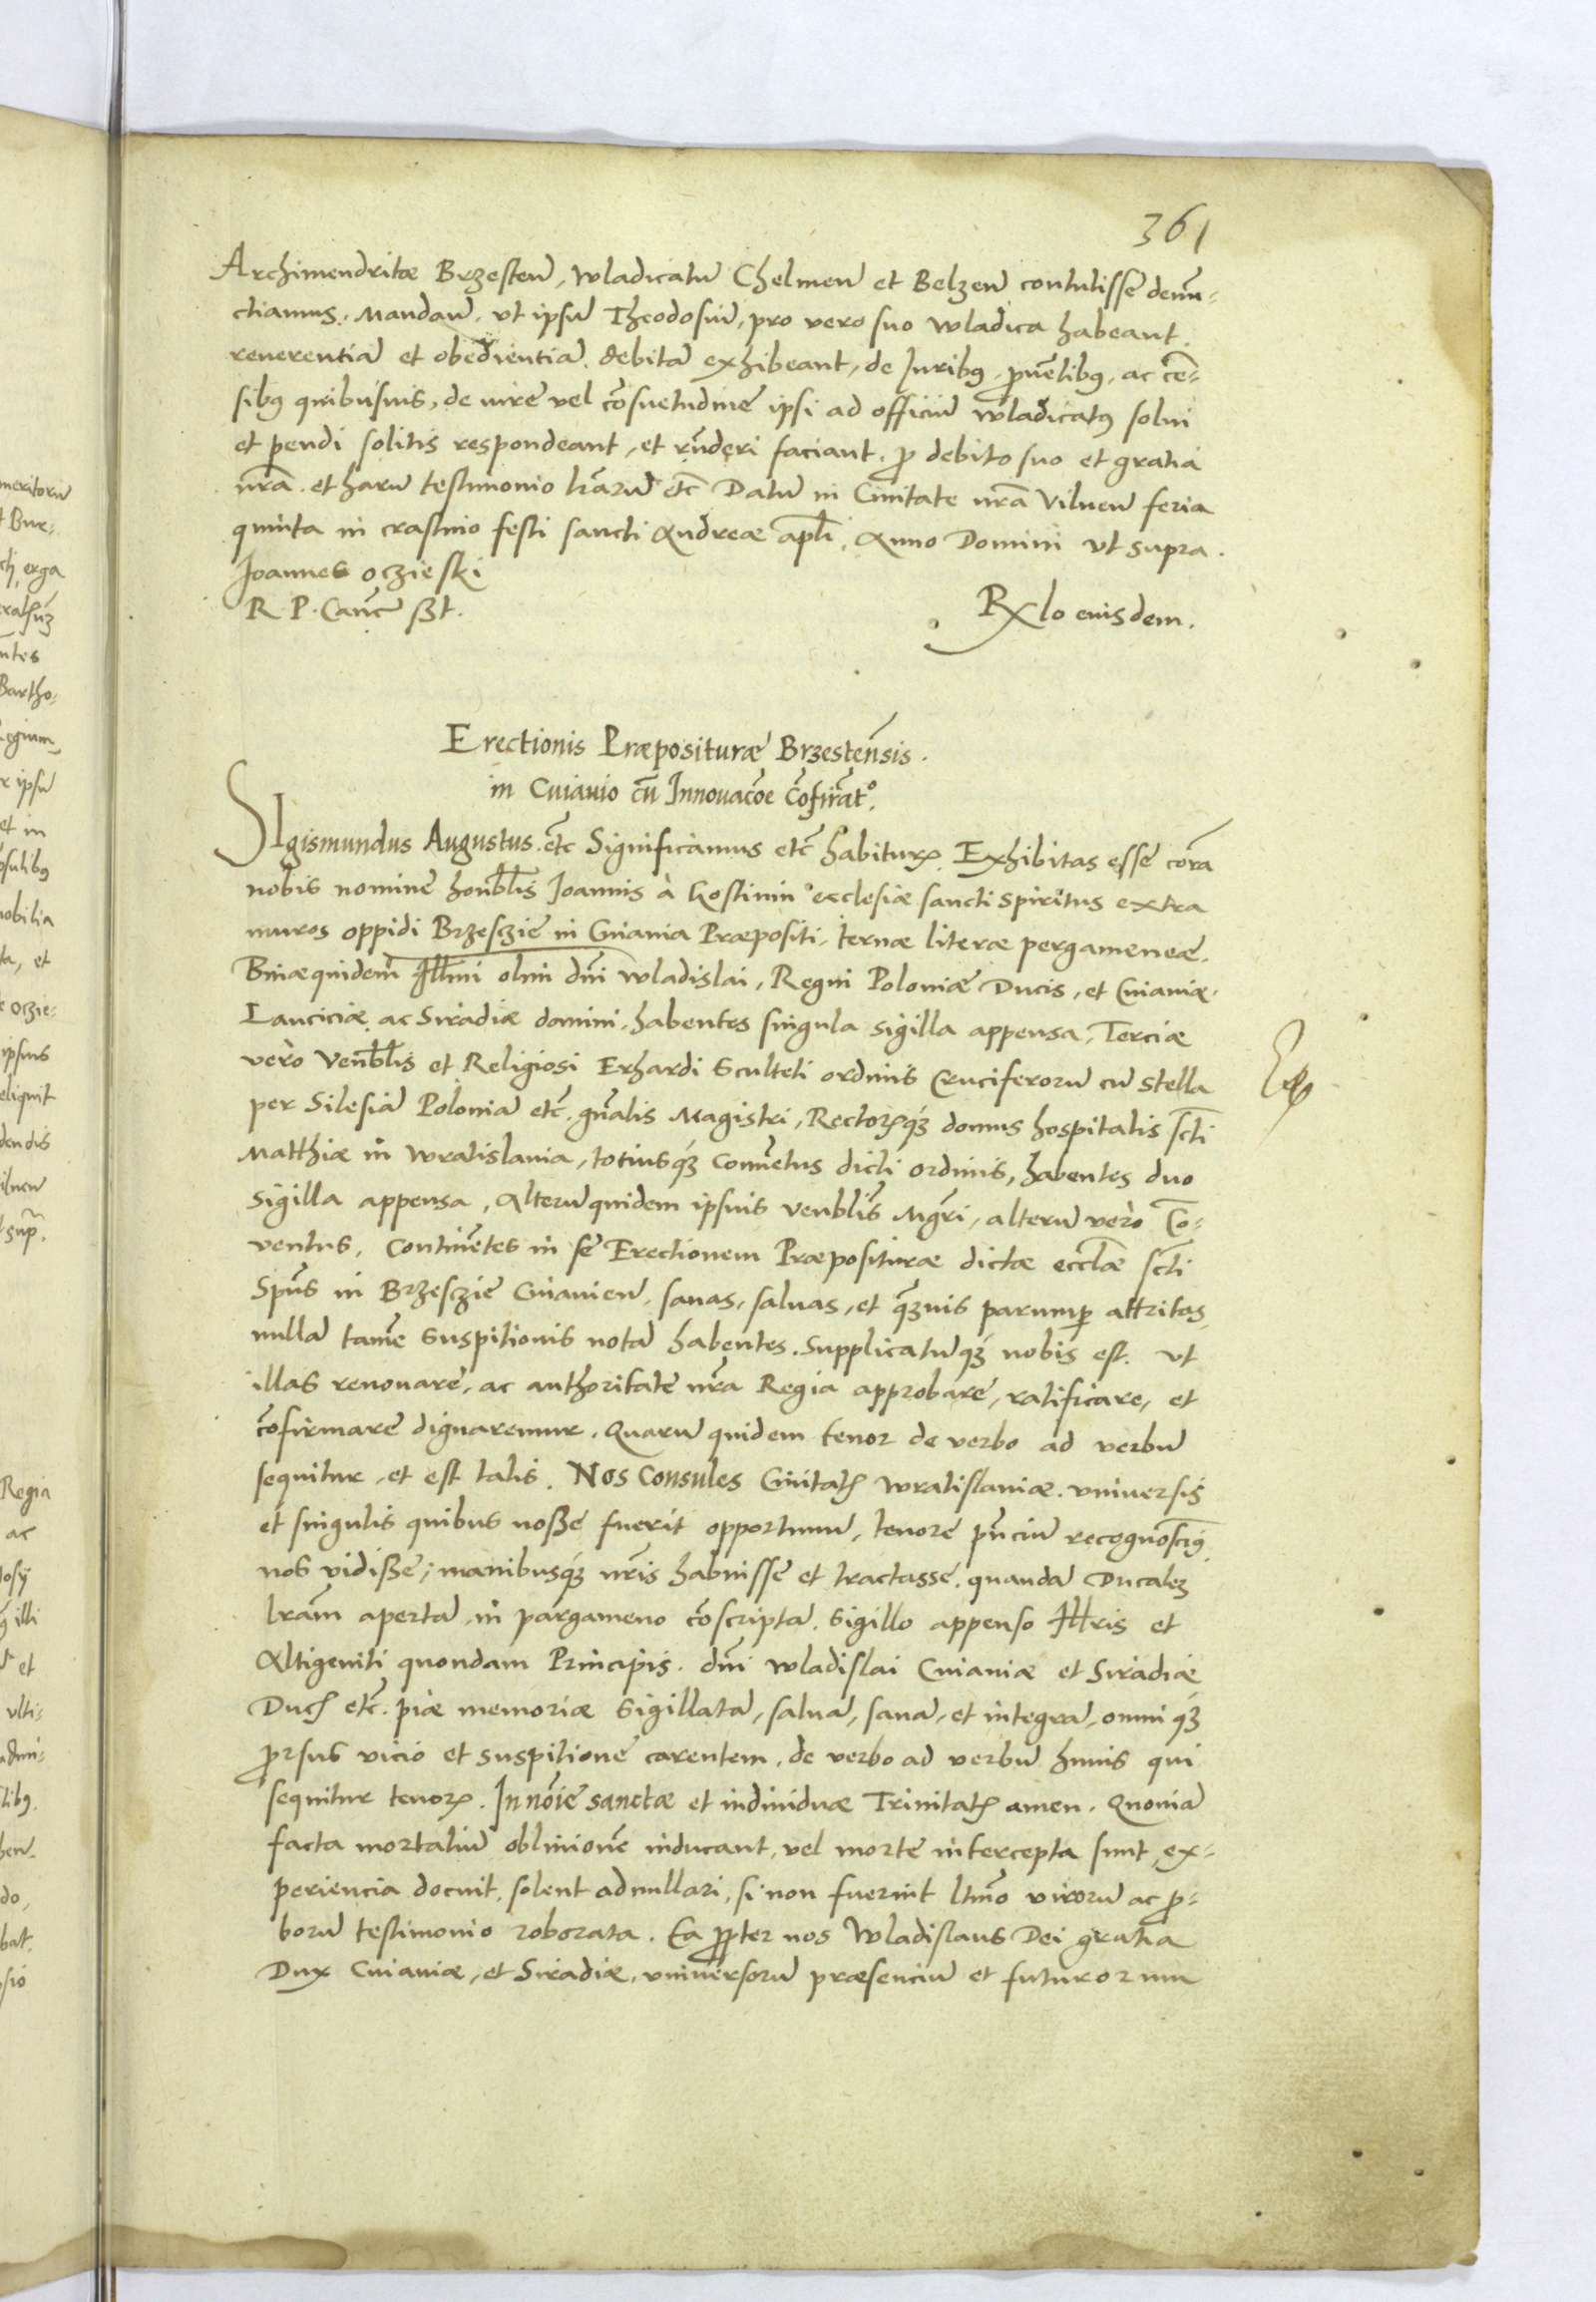 361
Archimendritæ Brzesteñ, wladicatũ Chelmeñ et Belzeñ contulisse denũ-
ctiamus. Mandañ. ut ipsũ Theodosiũ, pro vero suo wladica habeant.
reverentiã et obedientiã debitã exhibeant, de Iuribꝯ, ꝓuẽtibꝯ, ac cẽ-
sibꝯ quibusuis, de iure vel cõsuetudine ipsi ad officiũ wladicatꝯ solui
et pendi solitis respondeant, et rñderi faciant. ꝓ debito suo et gratia
nr̃a. et harũ testimonio lr̃arũ etc̃ Datũ in Ciuitate nr̃a Vilneñ feria
quinta in crastino festi sancti Andreæ apl̃i, Anno Domini ut supra.
Joannes Oczieski
R. P. Canc̃ ßt.
Rx̃lo eiusdem.
Erectionis Præpositurae Brzesteñsis.
in Cuiauio cũ Innouacõe cõfirmãtº.
SIgismundus Augustus. etc̃ Significamus etc̃ habiturꝝ Exhibitas esse corã
nobis nomine honbl̃is Joannis à Kostinin ecclesiæ sancti spiritus extra
muros oppidi Brzesczie in Cuiauia Præpositi, ternæ literæ pergameneæ.
Binæ quidem Ill̃mi olim dñi Wladislai, Regni Poloniæ Ducis, et Cuiauiæ.
Lanciciæ ac Siradiæ domini, habentes singula sigilla appensa, Terciæ
vero Venbl̃is et Religiosi Erhardi Sculteti ordinis Cruciferorũ cũ Stella
per Silesiã Poloniã etc̃. gñalis Magistri, Rectorisqꝫ domus hospitalis scti
Matthiæ in Wratislauia, totiusqꝫ Conuẽtus dicti ordinis, habentes duo
sigilla appensa, Alterũ quidem ipsius venbl̃is Mgr̃i, alterũ vero Cõ-
ventus. Continẽtes in se Erectionem Præpositurae dictæ eccl̃æ scti
Spũs in Brzesczie Cuiauieñ, sanas, saluas, et qꝫuis parumꝑ attritas,
nullã tamẽ suspitionis notã habentes. Supplicatũqꝫ nobis est. ut
illas renouare, ac authoritate nr̃a Regia approbare, ratificare, et
cõfirmare dignaremur. Quarũ quidem tenor de verbo ad verbũ
sequitur, et est talis. Nos Consules Ciuitatꝭ Wratislauiæ. vniuersis
et singulis quibus noße fuerit opportunũ, tenore pñciũ recognoscimꝯ
nos vidiße, manibusqꝫ nr̃is habuisse et tractasse. quandã Ducalem
lr̃am apertã in pargameno cõscriptã. sigillo appenso Ill̃ris et
Altigeniti quondam Principis. dñi Wladislai Cuiauiæ et Siradiæ
Ducꝭ etc̃. piæ memoriæ sigillatã, saluã, sanã, et integrã, omniqꝫ
ꝓrsus vicio et suspitione carentem, de verbo ad verbũ huius qui
sequitur tenorꝭ. In nõie sanctæ et indiuiduæ Trinitatꝭ amen. Quoniã
facta mortaliũ obliuionẽ inducant, vel morte intercepta sunt, ex-
periencia docuit, solent adnullari, si non fuerint ltm̃o virorũ ac ꝓ-
borũ testimonio roborata. Ea ꝓpter nos Wladislaus Dei gratia
Dux Cuiauiæ, et Siradiæ, vniuersorũ præsenciũ et futurorum